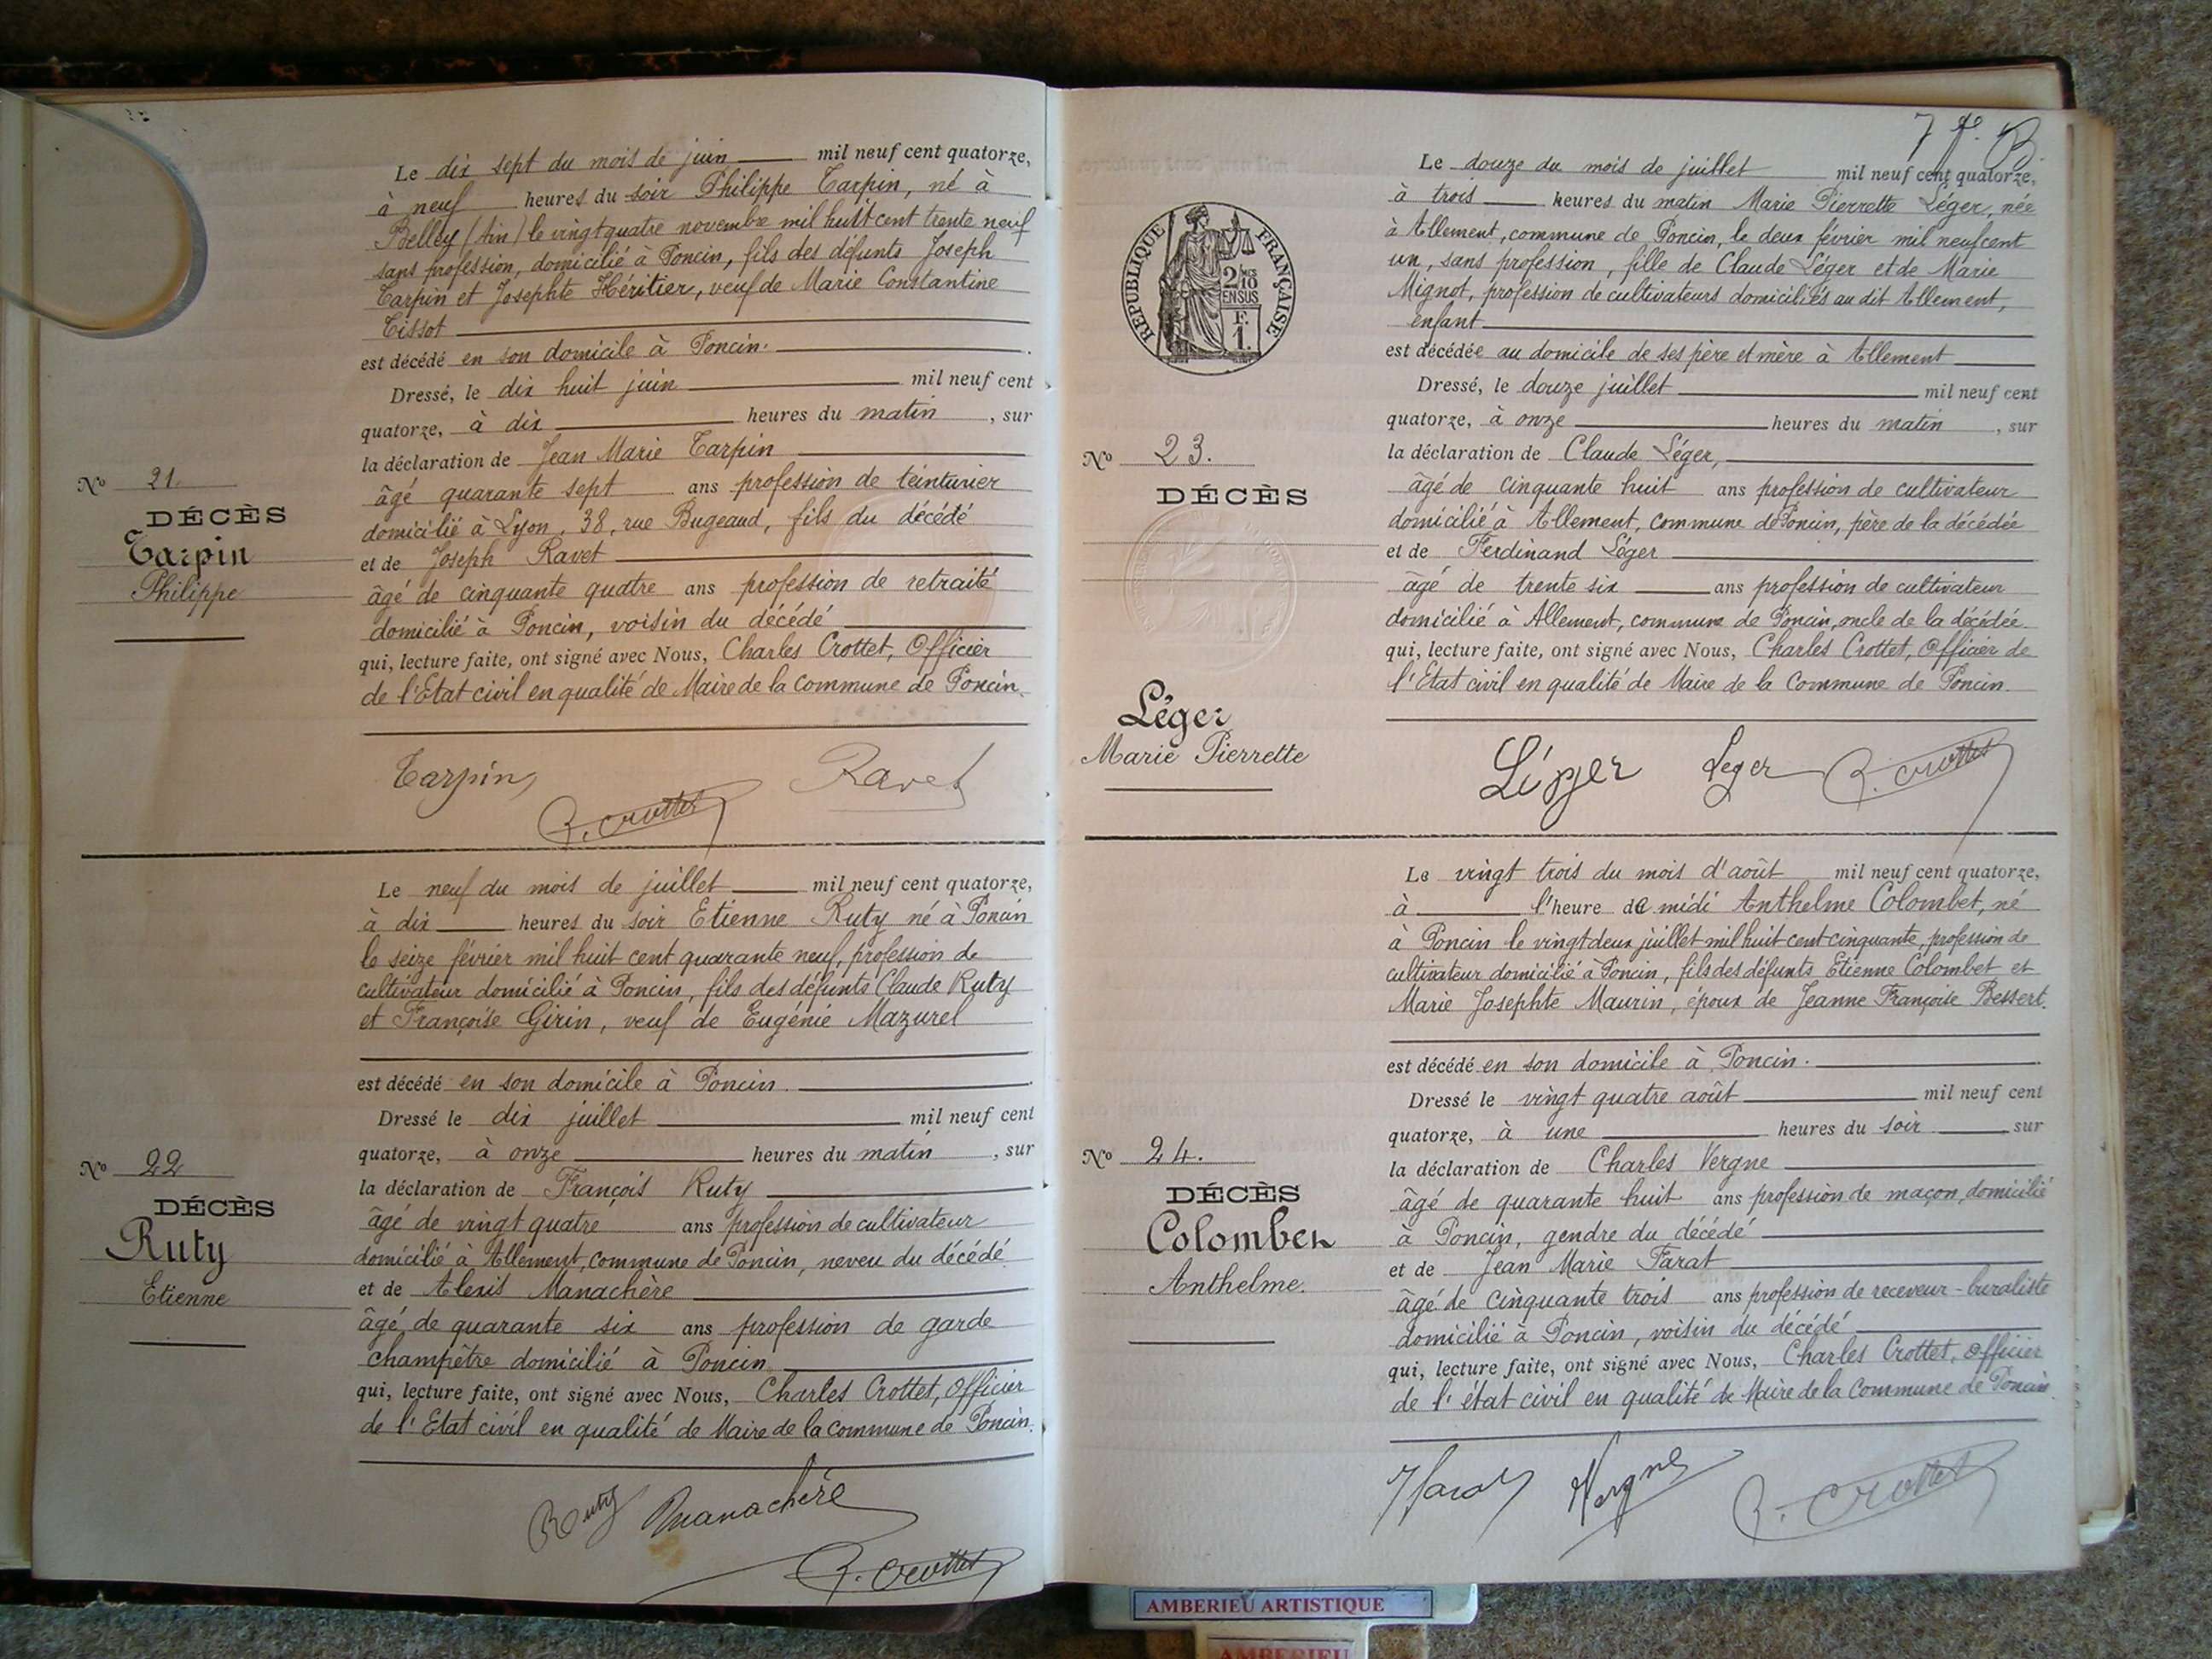 Le dix sept du mois de juin mil neuf cent quatorze,
à neuf heures du soir Philippe Tarpin, né à
Belley (Ain) le vingt quatre novembre mil huit cent trente neuf
sans profession, domicilié à Poncin, fils des défunts Joseph
Tarpin et Josephte Héritier, veuf de Marie Constantine
Tissot
est décédé en son domicile à Poncin.
Dressé, le dix huit juin mil neuf cent
quatorze, à dix heures du matin, sur
la déclaration de Jean Marie Tarpin
âgé quarante sept ans profession de teinturier
domicilié à Lyon, 38, rue Bugeaud, fils du décédé
et de Joseph Ravet
âgé de cinquante quatre ans profession de retraité
domicilié à Poncin, voisin du décédé
qui, lecture faite, ont signé avec Nous, Charles Crottet, Officier
de l'Etat civil en qualité de Maire de la Commune de Poncin.
No 21.
DÉCÈS
Tarpin
Philippe
Tarpin Ravet
C. Crottet
Le neuf du mois de juillet mil neuf cent quatorze,
à dix heures du soir Etienne Ruty né à Poncin
le seize février mil huit cent quarante neuf, profession de
cultivateur domicilié à Poncin, fils des défunts Claude Ruty
et Françoise Girin, veuf de Eugénie Mazurel
est décédé en son domicile à Poncin.
Dressé le dix juillet mil neuf cent
quatorze, à onze heures du matin, sur
la déclaration de François Ruty
âgé de vingt quatre ans profession de cultivateur
domicilié à Allement, commune de Poncin, neveu du décédé
et de Alexis Manachère
âgé de quarante six ans profession de garde
champêtre domicilié à Poncin
qui, lecture faite, ont signé avec Nous, Charles Crottet, Officier
de l'Etat civil en qualité de Maire de la Commune de Poncin.
No 22
DÉCÈS
Ruty
Etienne
Ruty Manachère
C. Crottet
7
Le douze du mois de juillet mil neuf cent quatorze,
à trois heures du matin Marie Pierrette Léger, née
à Allement, commune de Poncin, le deux février mil neuf cent
un, sans profession, fille de Claude Léger et de Marie
Mignot, profession de cultivateurs domiciliés au dit Allement,
enfant
est décédée au domicile de ses père et mère à Allement
Dressé, le douze juillet mil neuf cent
quatorze, à onze heures du matin, sur
la déclaration de Claude Léger,
âgé de cinquante huit ans profession de cultivateur
domicilié à Allement, commune de Poncin, père de la décédée
et de Ferdinand Léger
âgé de trente six ans profession de cultivateur
domicilié à Allement, commune de Poncin, oncle de la décédée
qui, lecture faite, ont signé avec Nous, Charles Crottet, Officier de
l'Etat civil en qualité de Maire de la Commune de Poncin.
RÉPUBLIQUE FRANÇAISE
2/10
EN SUS
F.
1.
No 23.
DÉCÈS
Léger
Marie Pierrette
Léger Leger C. Crottet
Le vingt trois du mois d'août mil neuf cent quatorze,
à l'heure de midi Anthelme Colombet, né
à Poncin le vingt deux juillet mil huit cent cinquante, profession de
cultivateur domicilié à Poncin, fils des défunts Etienne Colombet et
Marie Josephte Maurin, époux de Jeanne Françoise Bessert.
est décédé en son domicile à Poncin.
Dressé le vingt quatre août mil neuf cent
quatorze, à une heures du soir sur
la déclaration de Charles Vergne
âgé de quarante huit ans profession de maçon, domicilié
à Poncin, gendre du décédé
et de Jean Marie Farat
âgé de cinquante trois ans profession de receveur-buraliste
domicilié à Poncin, voisin du décédé
qui, lecture faite, ont signé avec Nous, Charles Crottet, Officier
de l'état civil en qualité de Maire de la Commune de Poncin.
No 24.
DÉCÈS
Colombet
Anthelme.
Farat Vergne C. Crottet
AMBERIEU ARTISTIQUE
AMBERIEU